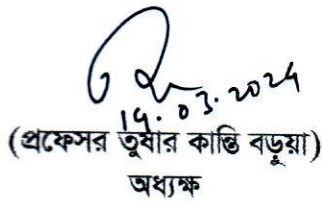 14.03.2024
(প্রফেসর তুষার কান্তি বড়ুয়া)
অধ্যক্ষ